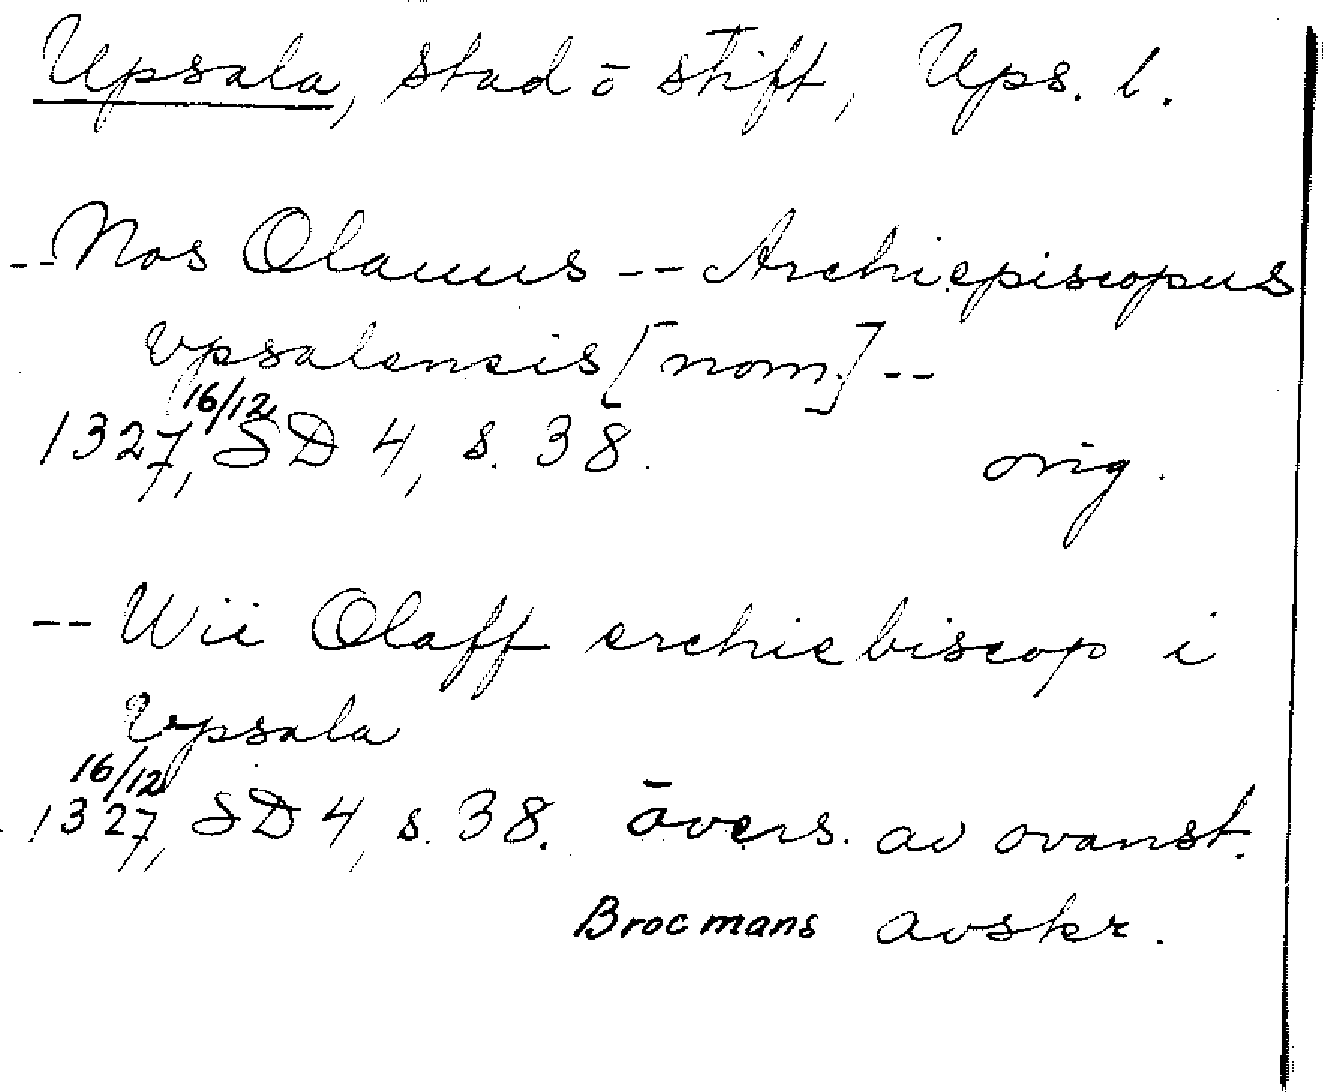 Upsala, stad ō stift, Ups. l.
-- Nos Olauus -- Archiepiscopus
Vpsalensis [nom.] --
1327, 16/12, SD 4, s. 38. orig.
-- Wii Olaff erchiebiscop i
Vpsala
1327, 16/12, SD 4, s. 38. övers. av ovanst.
Brocmans avskr.